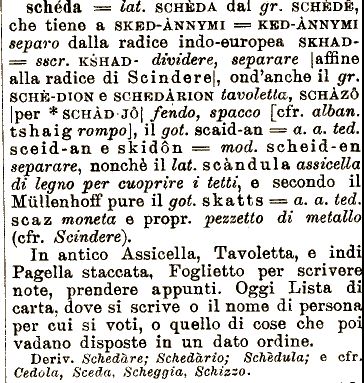 schéda = lat. SCHÈDA dal gr. SCHÈDÊ,
che tiene a SKED-ÀNNYMI = KED-ÀNNYMI
separo dalla radice indo-europea SKHAD-
= sscr. KSHAD- dividere, separare |affine
alla radice di Scindere|, ond'anche il gr.
SCHÈ-DION e SCHEDÀRION tavoletta, SCHÀZÔ
|per *SCHÀD-JÔ| fendo, spacco [cfr. alban.
tshaig rompo], il got. scaid-an = a. a. ted.
sceid-an e skidôn = mod. scheid-en
separare, nonchè il lat. scàndula assicella
di legno per cuoprire i tetti, e secondo il
Müllenhoff pure il got. skatts = a. a. ted.
scaz moneta e propr. pezzetto di metallo
(cfr. Scindere).
In antico Assicella, Tavoletta, e indi
Pagella staccata, Foglietto per scrivere
note, prendere appunti. Oggi Lista di
carta, dove si scrive o il nome di persona
per cui si voti, o quello di cose che poi
vadano disposte in un dato ordine.
Deriv. Schedàre; Schedàrio; Schèdula; e cfr.
Cedola, Sceda, Scheggia, Schizzo.